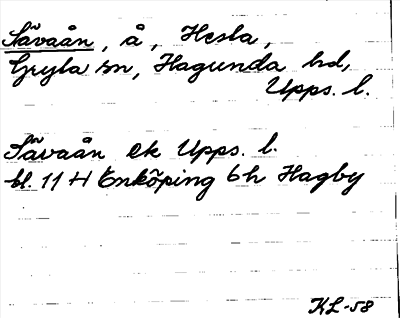 Sävaån, å, Hesla,
Gryta sn, Hagunda hd,
Upps. l.
Sävaån ek Upps. l.
bl. 11 H Enköping 6h Hagby
KL-58